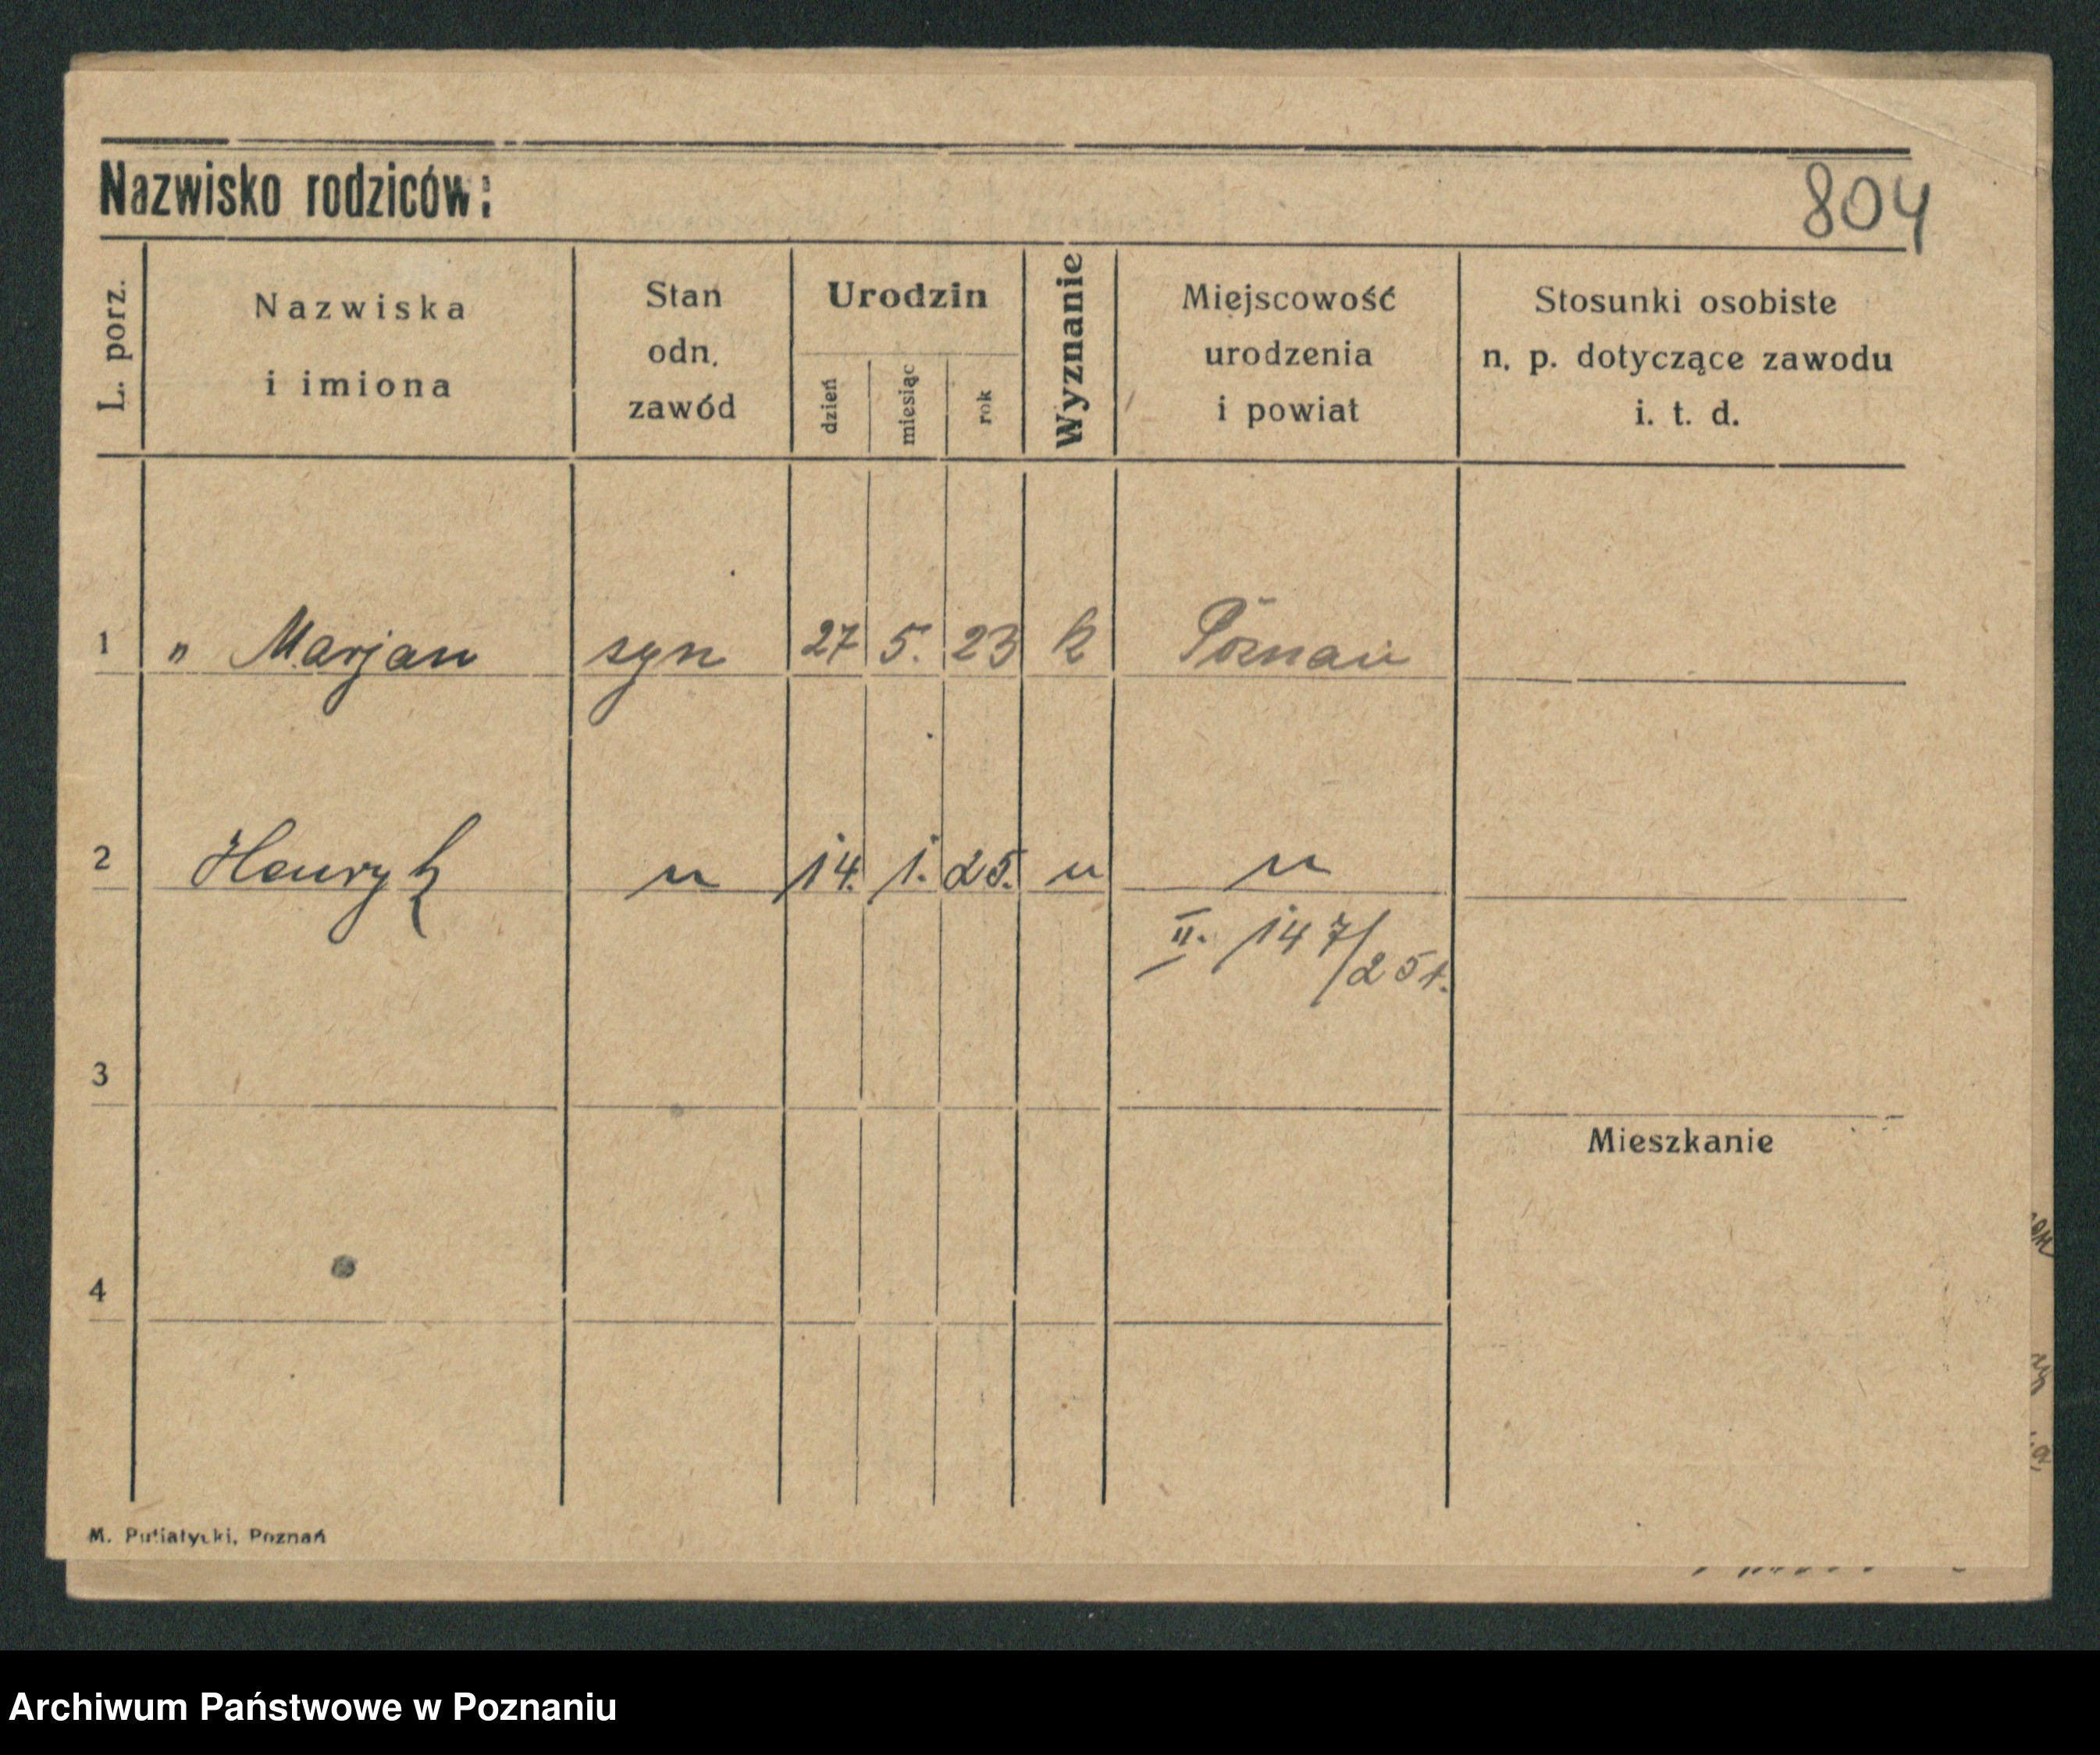 Nazwisko rodziców:
804
L. porz.
Nazwiska
i imiona
Stan
odn.
zawód
Urodzin
dzień
miesiąc
rok
Wyznanie
Miejscowość
urodzenia
i powiat
Stosunki osobiste
n. p. dotyczące zawodu
i. t. d.
1 " Marjan syn 27 5. 23 k Poznań
2 Henryk " 14. 1. 25. " "
II. 147/25
3
Mieszkanie
4
M. Putiatycki, Poznań
Archiwum Państwowe w Poznaniu